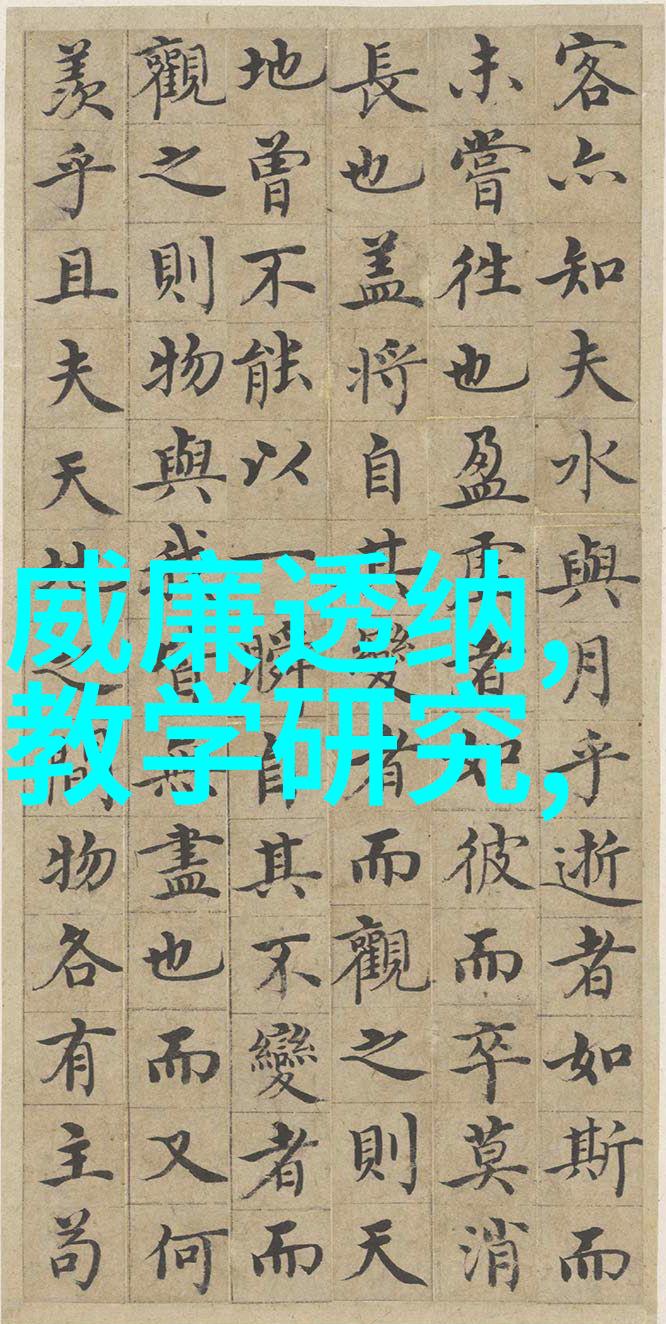 客亦知夫水與月乎逝者如斯而
未嘗往也盈虛者如彼而卒莫消
長也盖將自其變者而觀之則天
地曾不能以一瞬自其不變者而
觀之則物與我皆無盡也而又何
羨乎且夫天地之間物各有主苟
威廉透纳,
教学研究,